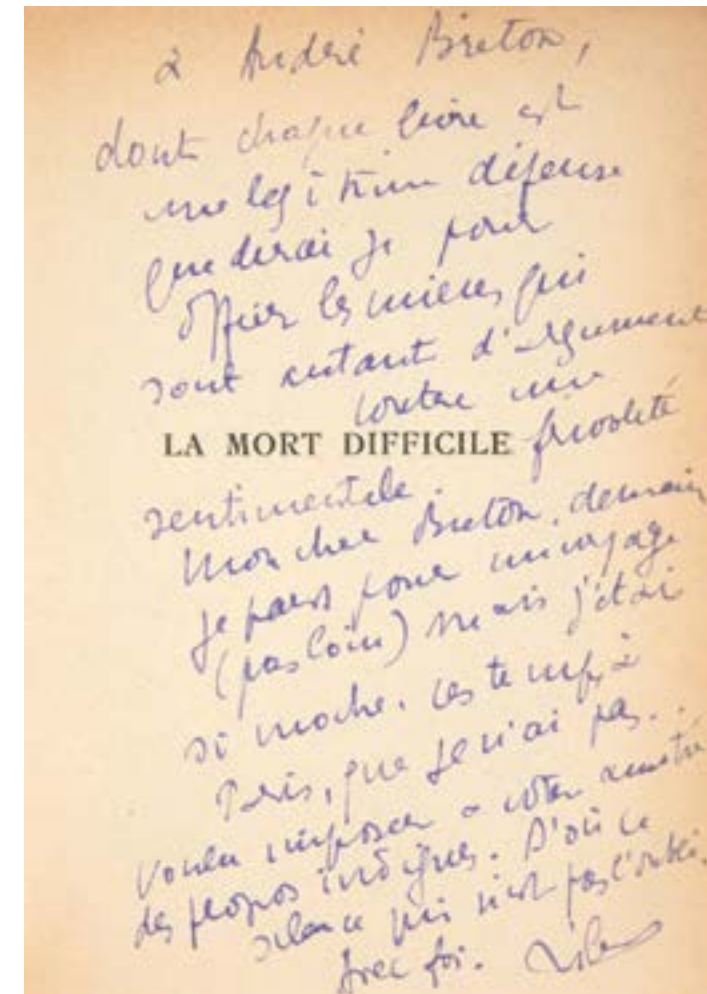 à André Breton,
dont chaque livre est
une légitime défense
que dirai je pour
offrir les miens qui
sont autant d'argument
contre une
LA MORT DIFFICILE frivolité
sentimentale.
Mon cher Breton, demain
je pars pour un voyage
(pas loin) mais j'étai
si moche. ces temps, à
Paris, que je n'ai pas
voulu imposer à votre amitié
des propos indignes. D'où ce
silence qui n'est pas l'oubli.
Avec foi.